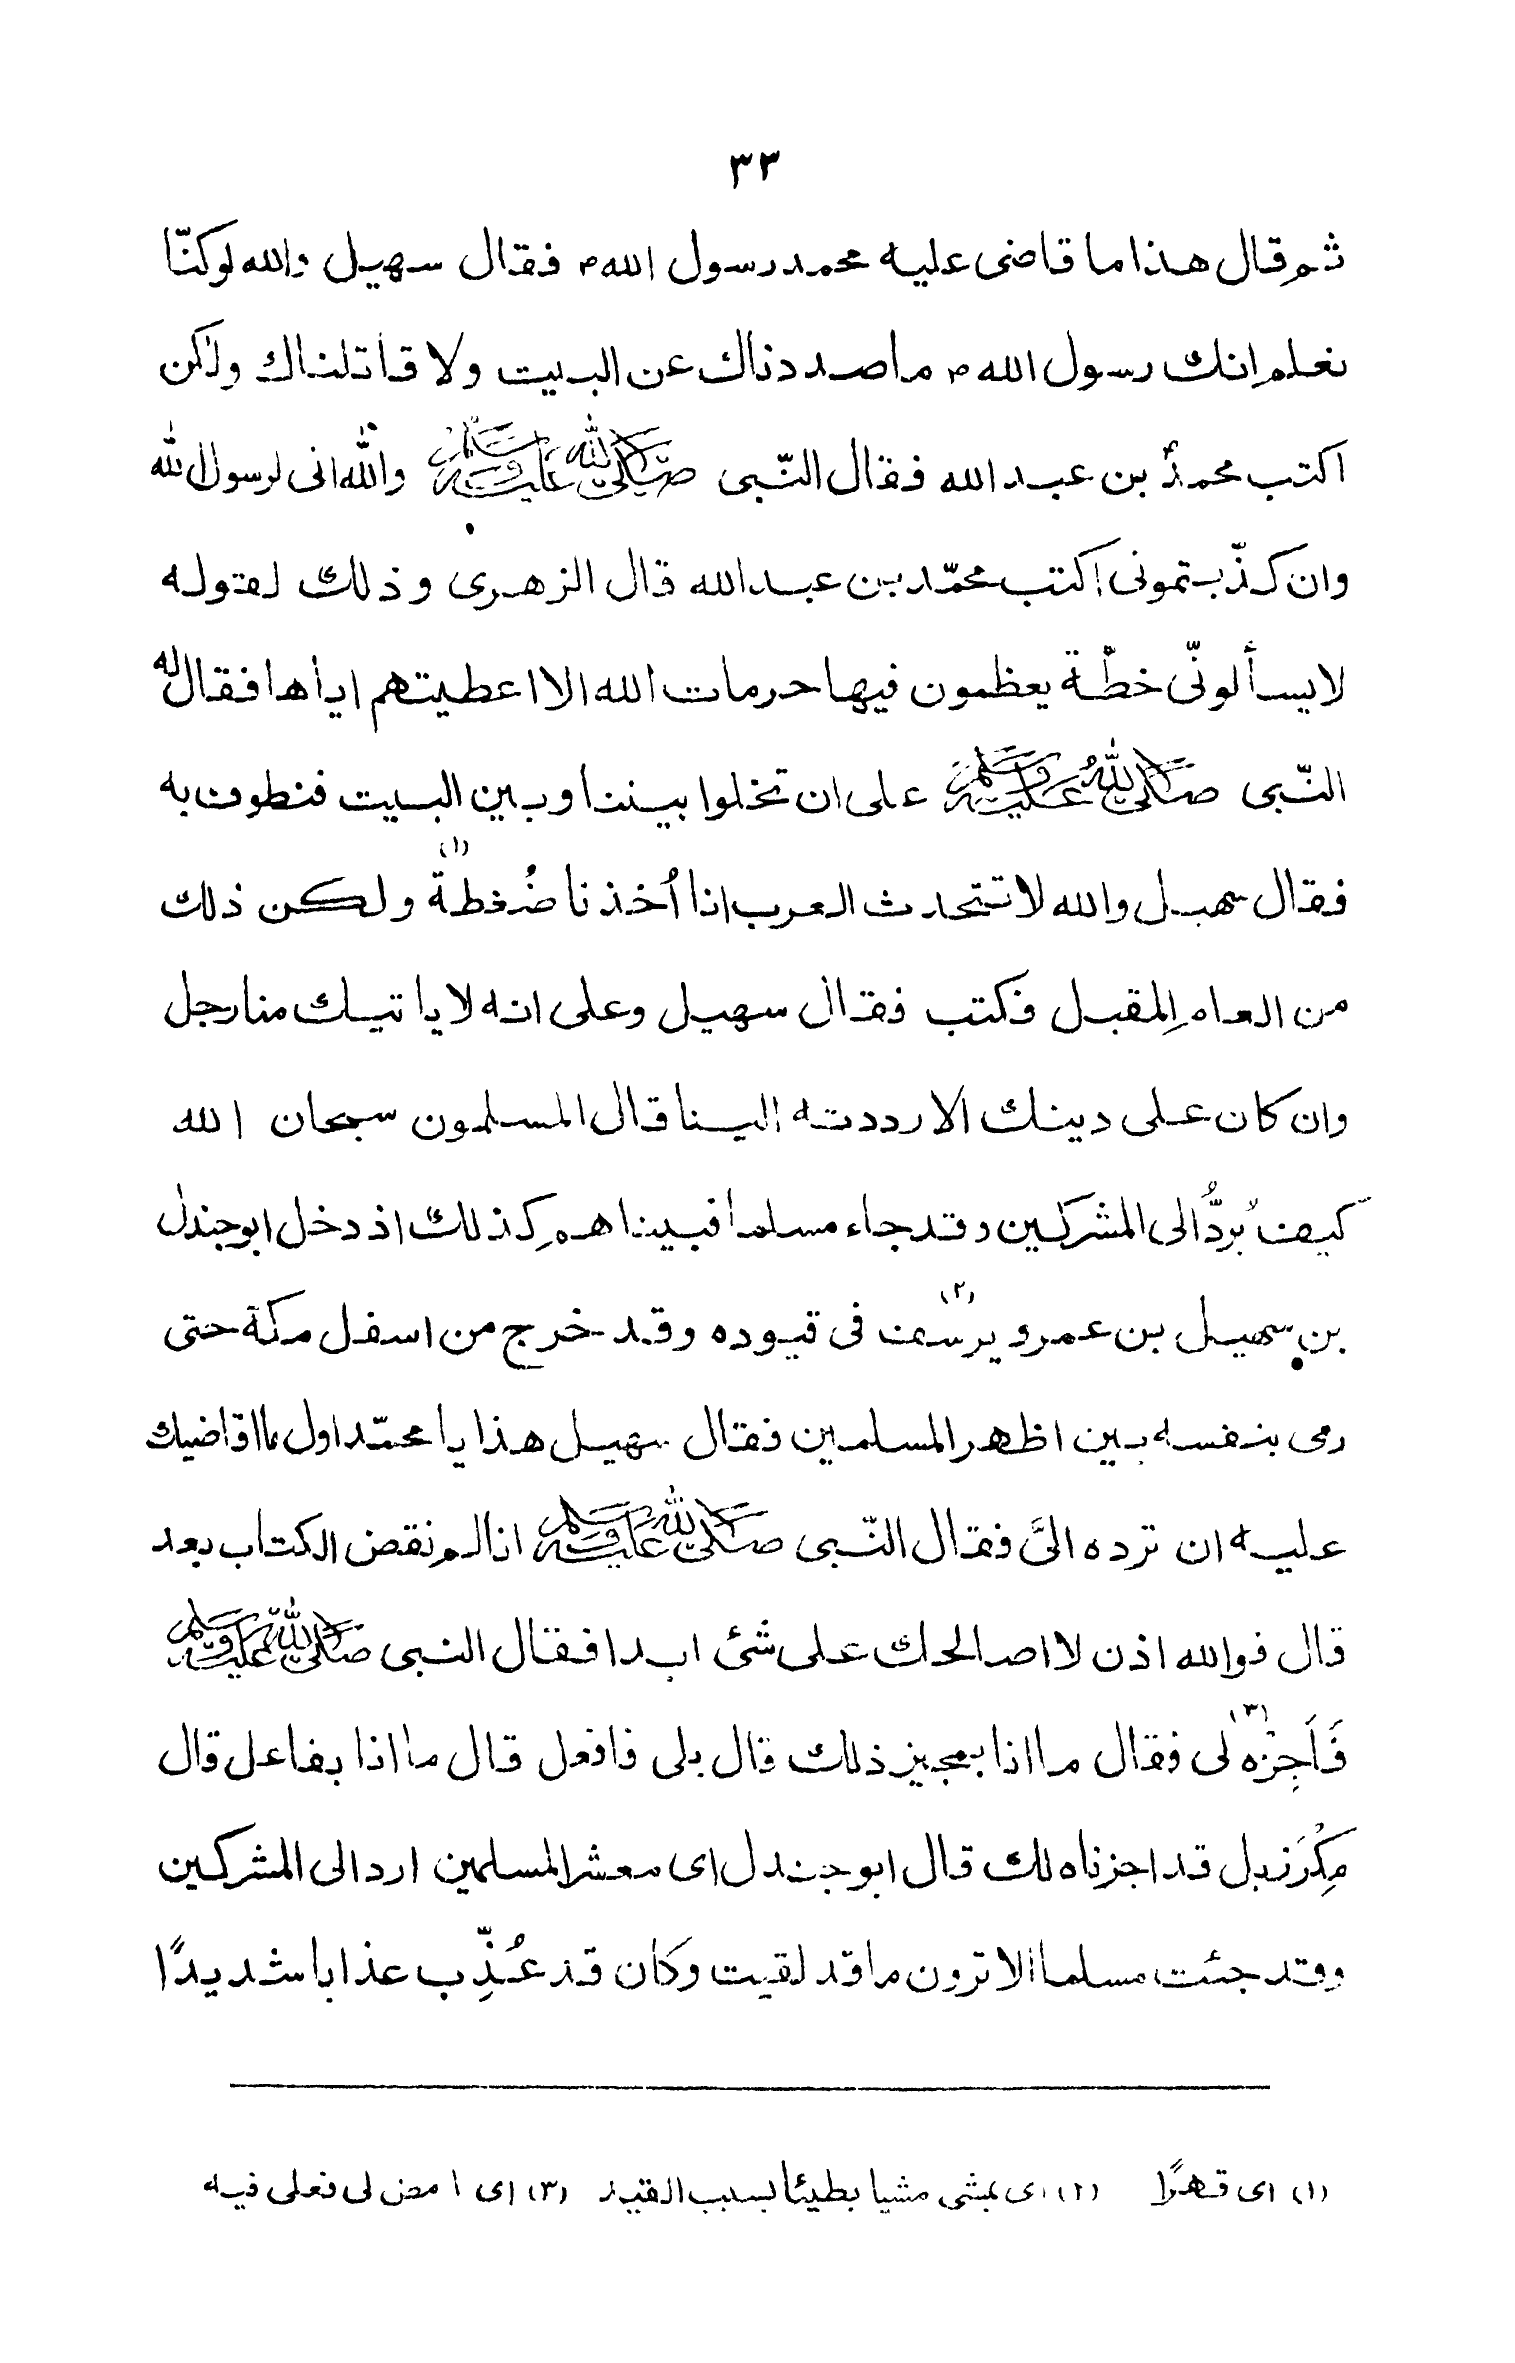 ٣٣
ثم قال هذا ما قاضى عليه محمد رسول الله ص فقال سهيل والله لو كنّا
نعلم انك رسول الله ص ما صددناك عن البيت ولا قاتلناك ولكن
اكتب محمدٌ بن عبد الله فقال النّبى صلى الله عليه وسلم والله انى لرسول الله
وان كذّبتمونى اكتب محمّد بن عبد الله قال الزهرى وذلك لقوله
لا يسألونّى خطّة يعظمون فيها حرمات الله الا اعطيتهم اياها فقال له
النّبى صلى الله عليه وسلم على ان تخلوا بيننا وبين البيت فنطوف به
فقال سهيل والله لا تتحدث العرب انا أُخذنا ضُغطة (١) ولكن ذلك
من العام المقبل فكتب فقال سهيل وعلى انه لا ياتيك منا رجل
وان كان على دينك الا رددته الينا قال المسلمون سبحان الله
كيف يُردُّ الى المشركين وقد جاء مسلما فبينا هم كذلك اذ دخل ابو جندل
بن سهيل بن عمرو يرسف (٢) فى قيوده وقد خرج من اسفل مكة حتى
رمى بنفسه بين اظهر المسلمين فقال سهيل هذا يا محمّد اول ما اقاضيك
عليه ان ترده الىَّ فقال النّبى صلى الله عليه وسلم انا لم نقض الكتاب بعد
قال فوالله اذن لا اصالحك على شئ ابدا فقال النبى صلى الله عليه وسلم
فَاَجِزْه (٣) لى فقال ما انا بمجيز ذلك قال بلى فافعل قال ما انا بفاعل قال
مِكْرَز بل قد اجزناه لك قال ابو جندل اى معشر المسلمين ارد الى المشركين
وقد جئت مسلما الا ترون ما قد لقيت وكان قد عُذِّب عذابا شديدًا
(١) اى قهرًا (٢) اى يمشى مشيا بطيئا بسبب القيد (٣) اى امض لى فعلى فيه